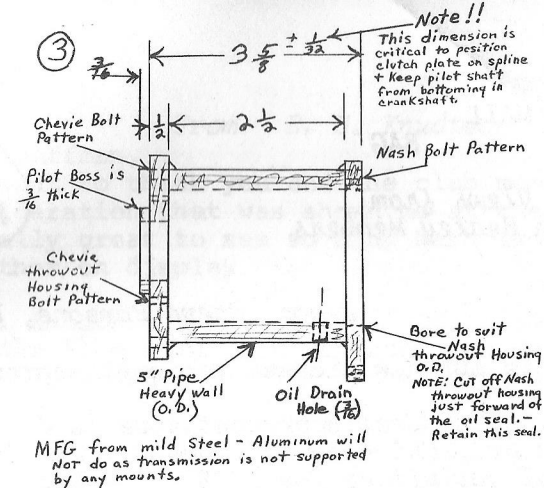 3
Note!!
This dimension is
critical to position
clutch plate on spline
+ Keep pilot shaft
from bottoming in
crankshaft.
3 5/8 ± 1/32
3/16
1/2
2 1/2
Chevie Bolt
Pattern
Nash Bolt Pattern
Pilot Boss is
3/16 thick
Chevie
throwout
Housing
Bolt Pattern
Bore to suit
Nash
throwout Housing
O.D.
NOTE: Cut off Nash
throwout housing
just forward of
the oil seal.-
Retain this seal.
5" Pipe
Heavy Wall
(O.D.)
Oil Drain
Hole (3/16)
MFG from mild Steel - Aluminum will
NOT do as transmission is not supported
by any mounts.